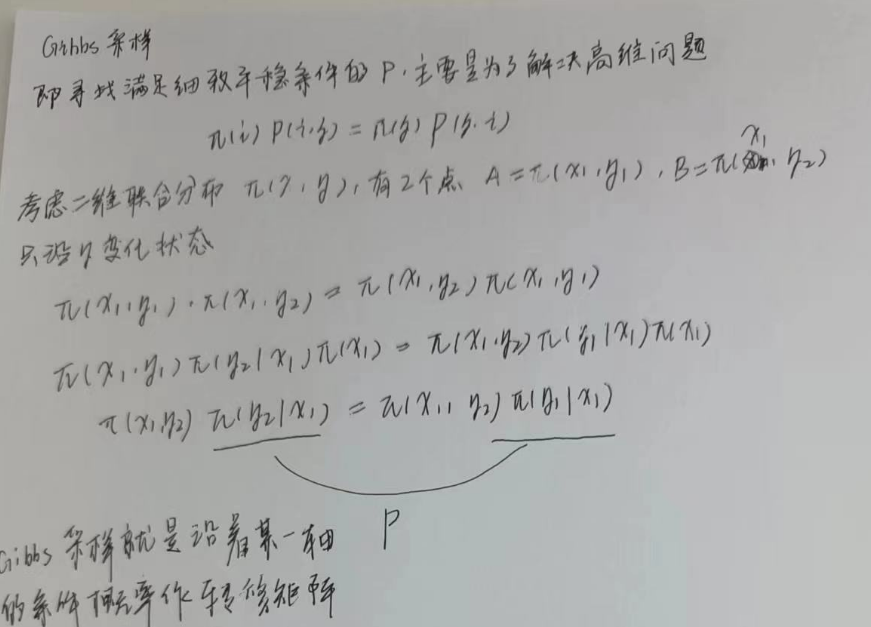 Gibbs 采样
即寻找满足细致平稳条件的 P. 主要是为了解决高维问题
π(i) P(i,j) = π(j) P(j,i)
考虑二维联合分布 π(x,y), 有2个点 A=π(x₁,y₁), B=π(x₁,y₂)
只沿y变化状态
π(x₁,y₁)·π(x₁,y₂) = π(x₁,y₂)π(x₁,y₁)
π(x₁,y₁)π(y₂|x₁)π(x₁) = π(x₁,y₂)π(y₁|x₁)π(x₁)
π(x₁,y₂) π(y₂|x₁) = π(x₁, y₂) π(y₁|x₁)
P
Gibbs 采样就是沿着某一轴
的条件概率作转移矩阵